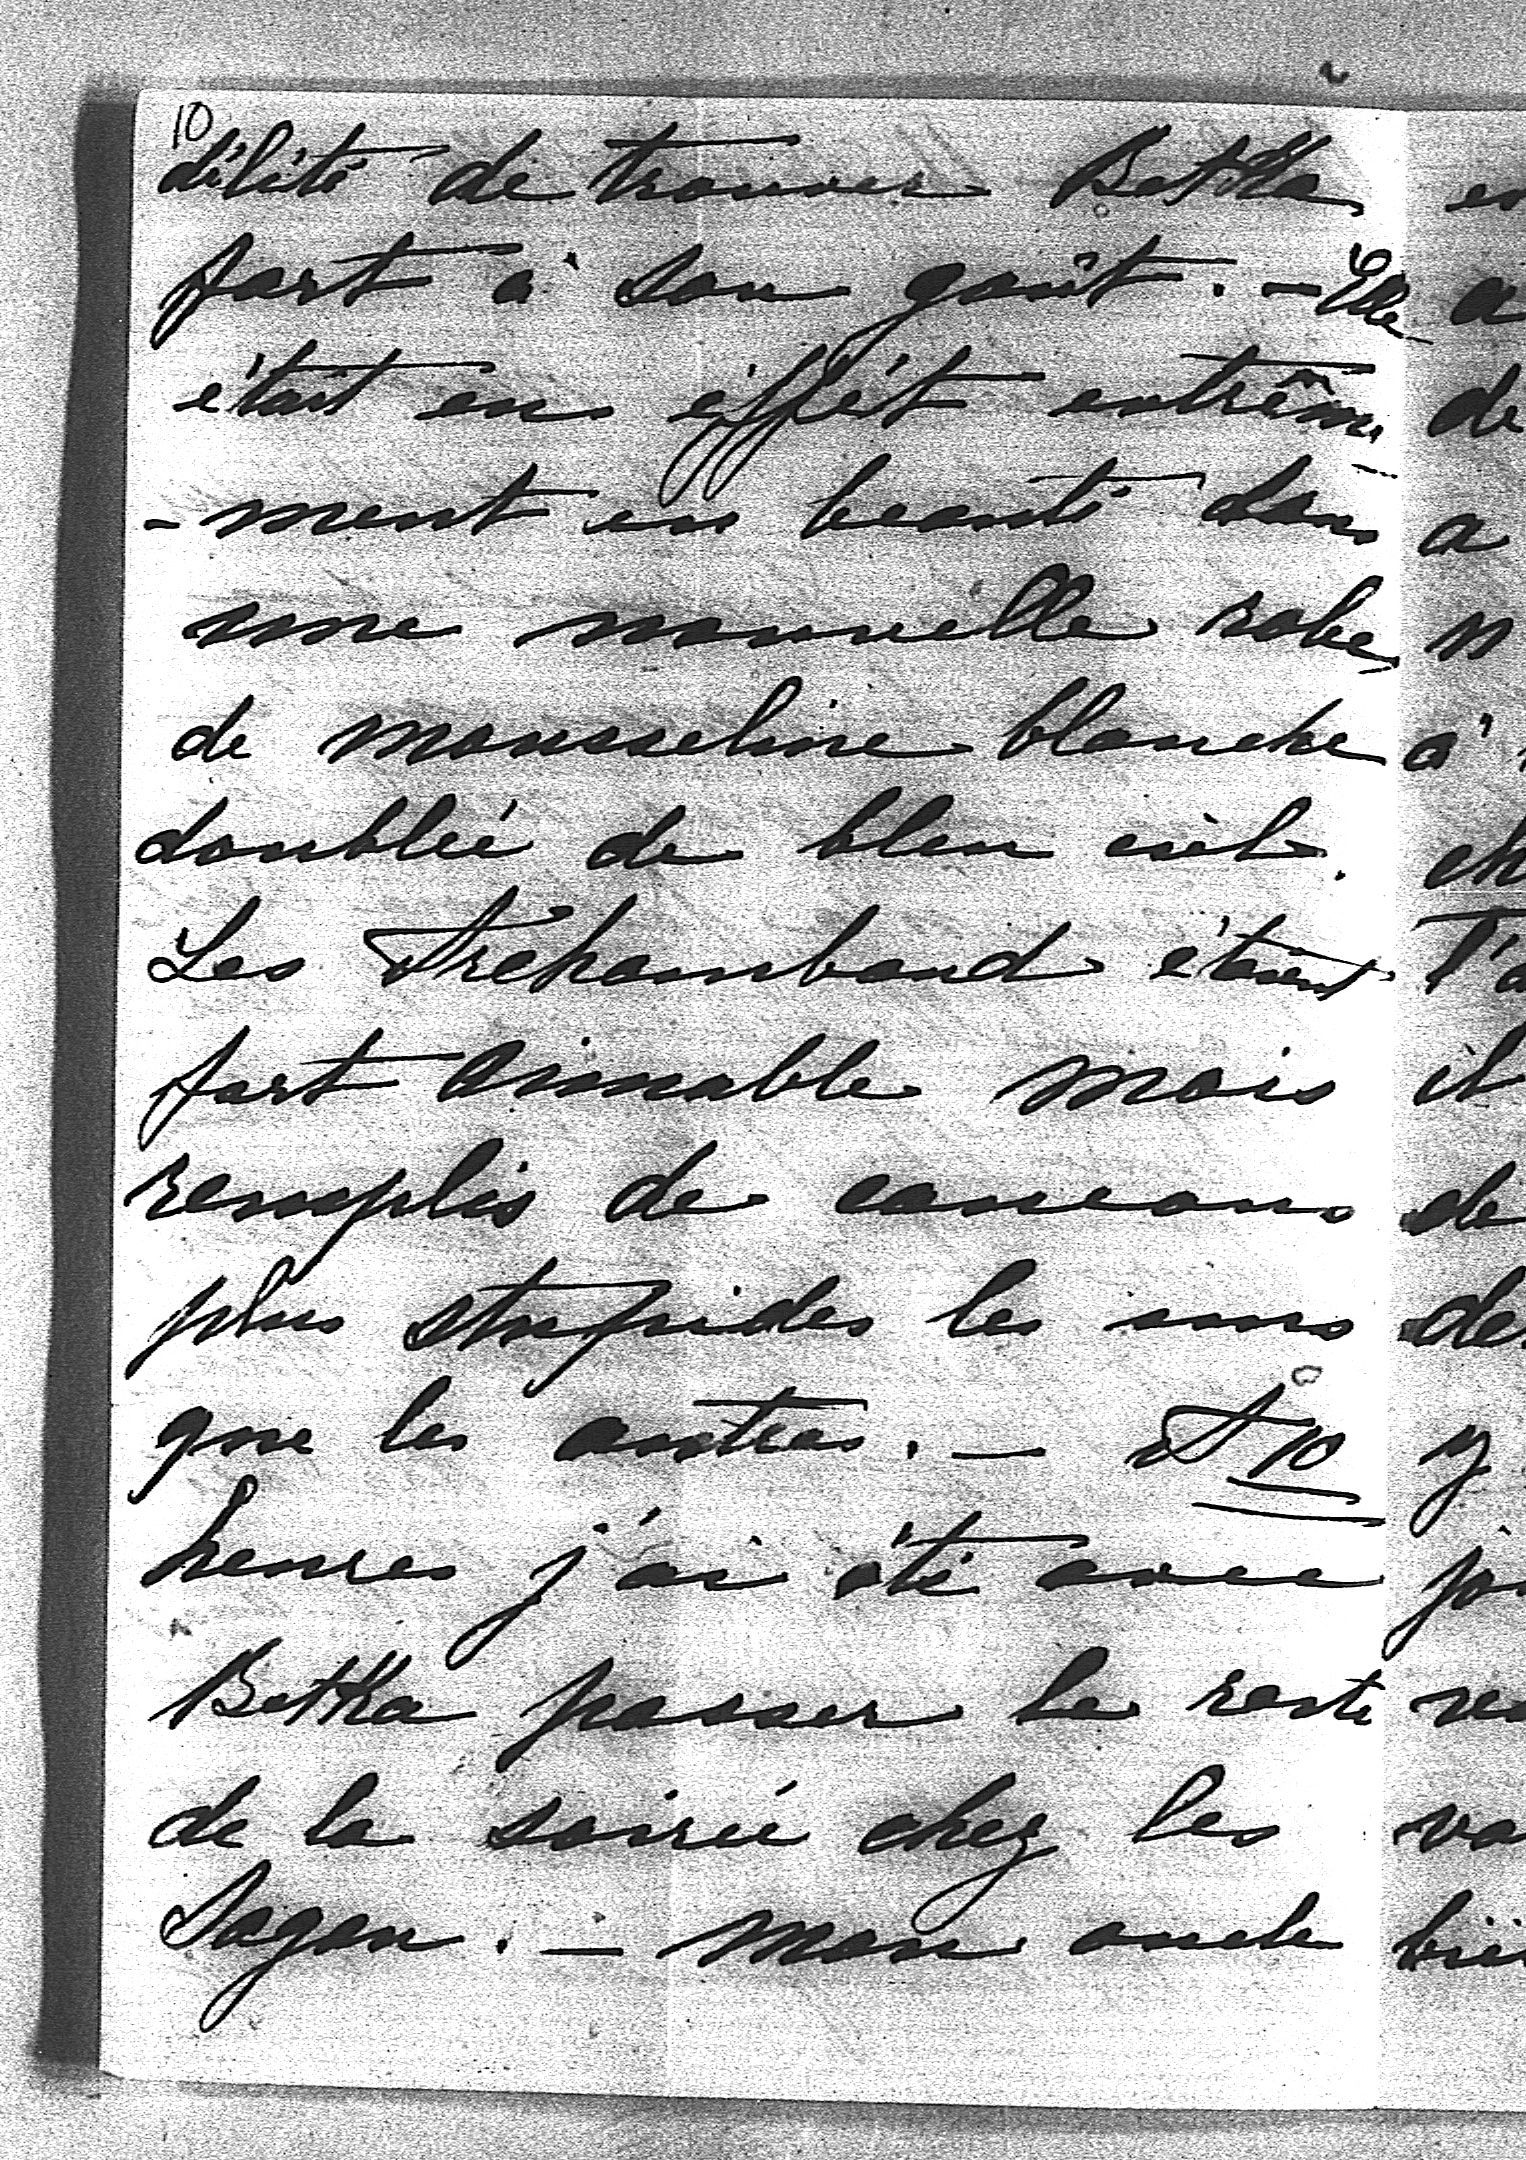 10
délité de trouver Betka
fort à son goût. - Elle
était en éffét extrême
- ment en beauté dans
une nouvelle robe
de mousseline blanche
doublée de bleu ciel.
Les Trehamband étaient
fort aimable mais
remplis de cancans
plus stupides les uns
que les autres. — A 10
heures j'ai été avec
Betka passer le reste
de la soirée chez les
Sagan. — Mon oncle